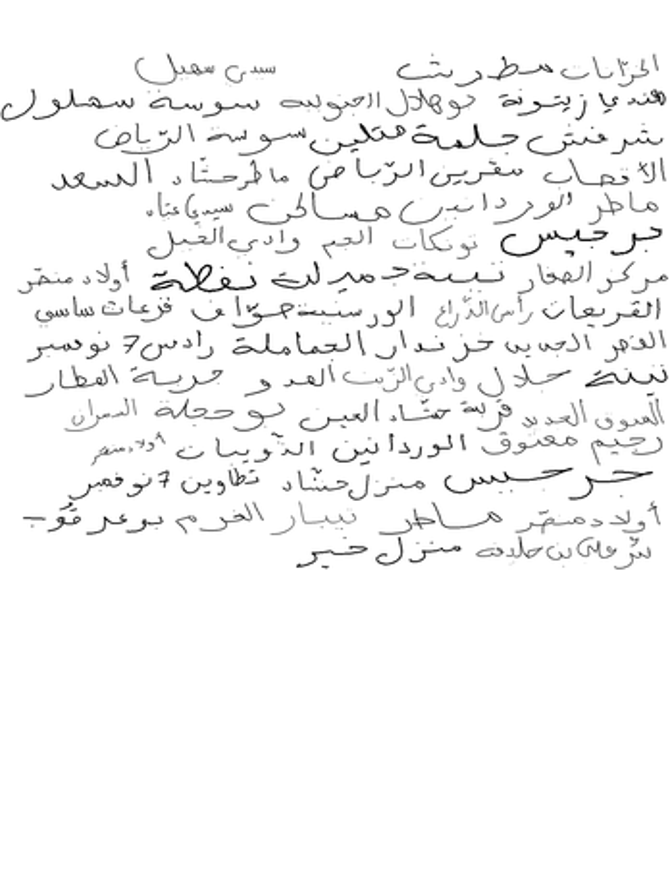 الخزانات مطريش سيدي سهيل
هندي زيتونة بوهلال الجنوبية سوسة سهلول
شرفش جلمة متلين سوسة الرياض
الأقصاب سقرين الرياض ماطر حشاد السعد
ماطر الوردانين مساكن سيدي عباد
جرجيس تونكات الجم وادي الجبل
مركز الصغار نبينة جميرلة نفطة أولاد منصر
القريعات رأس الذراع الورسنية حواف قزعات ساسي
القصر الجديد خزندار الحماملة رادس 7 نوفمبر
نينة جلال وادي الزيت الغدو حربة العطار
السوق الجديد قرية حشاد العين بوحجلة السمران
رجيم معتوق الوردانين الذويبات أولاد منصر
جرجيس منزل حشاد تطاوين 7 نوفمبر
أولاد منصر ماطر نيبار الخرم بوعرقوب
بئر علي بن خليفة منزل خير